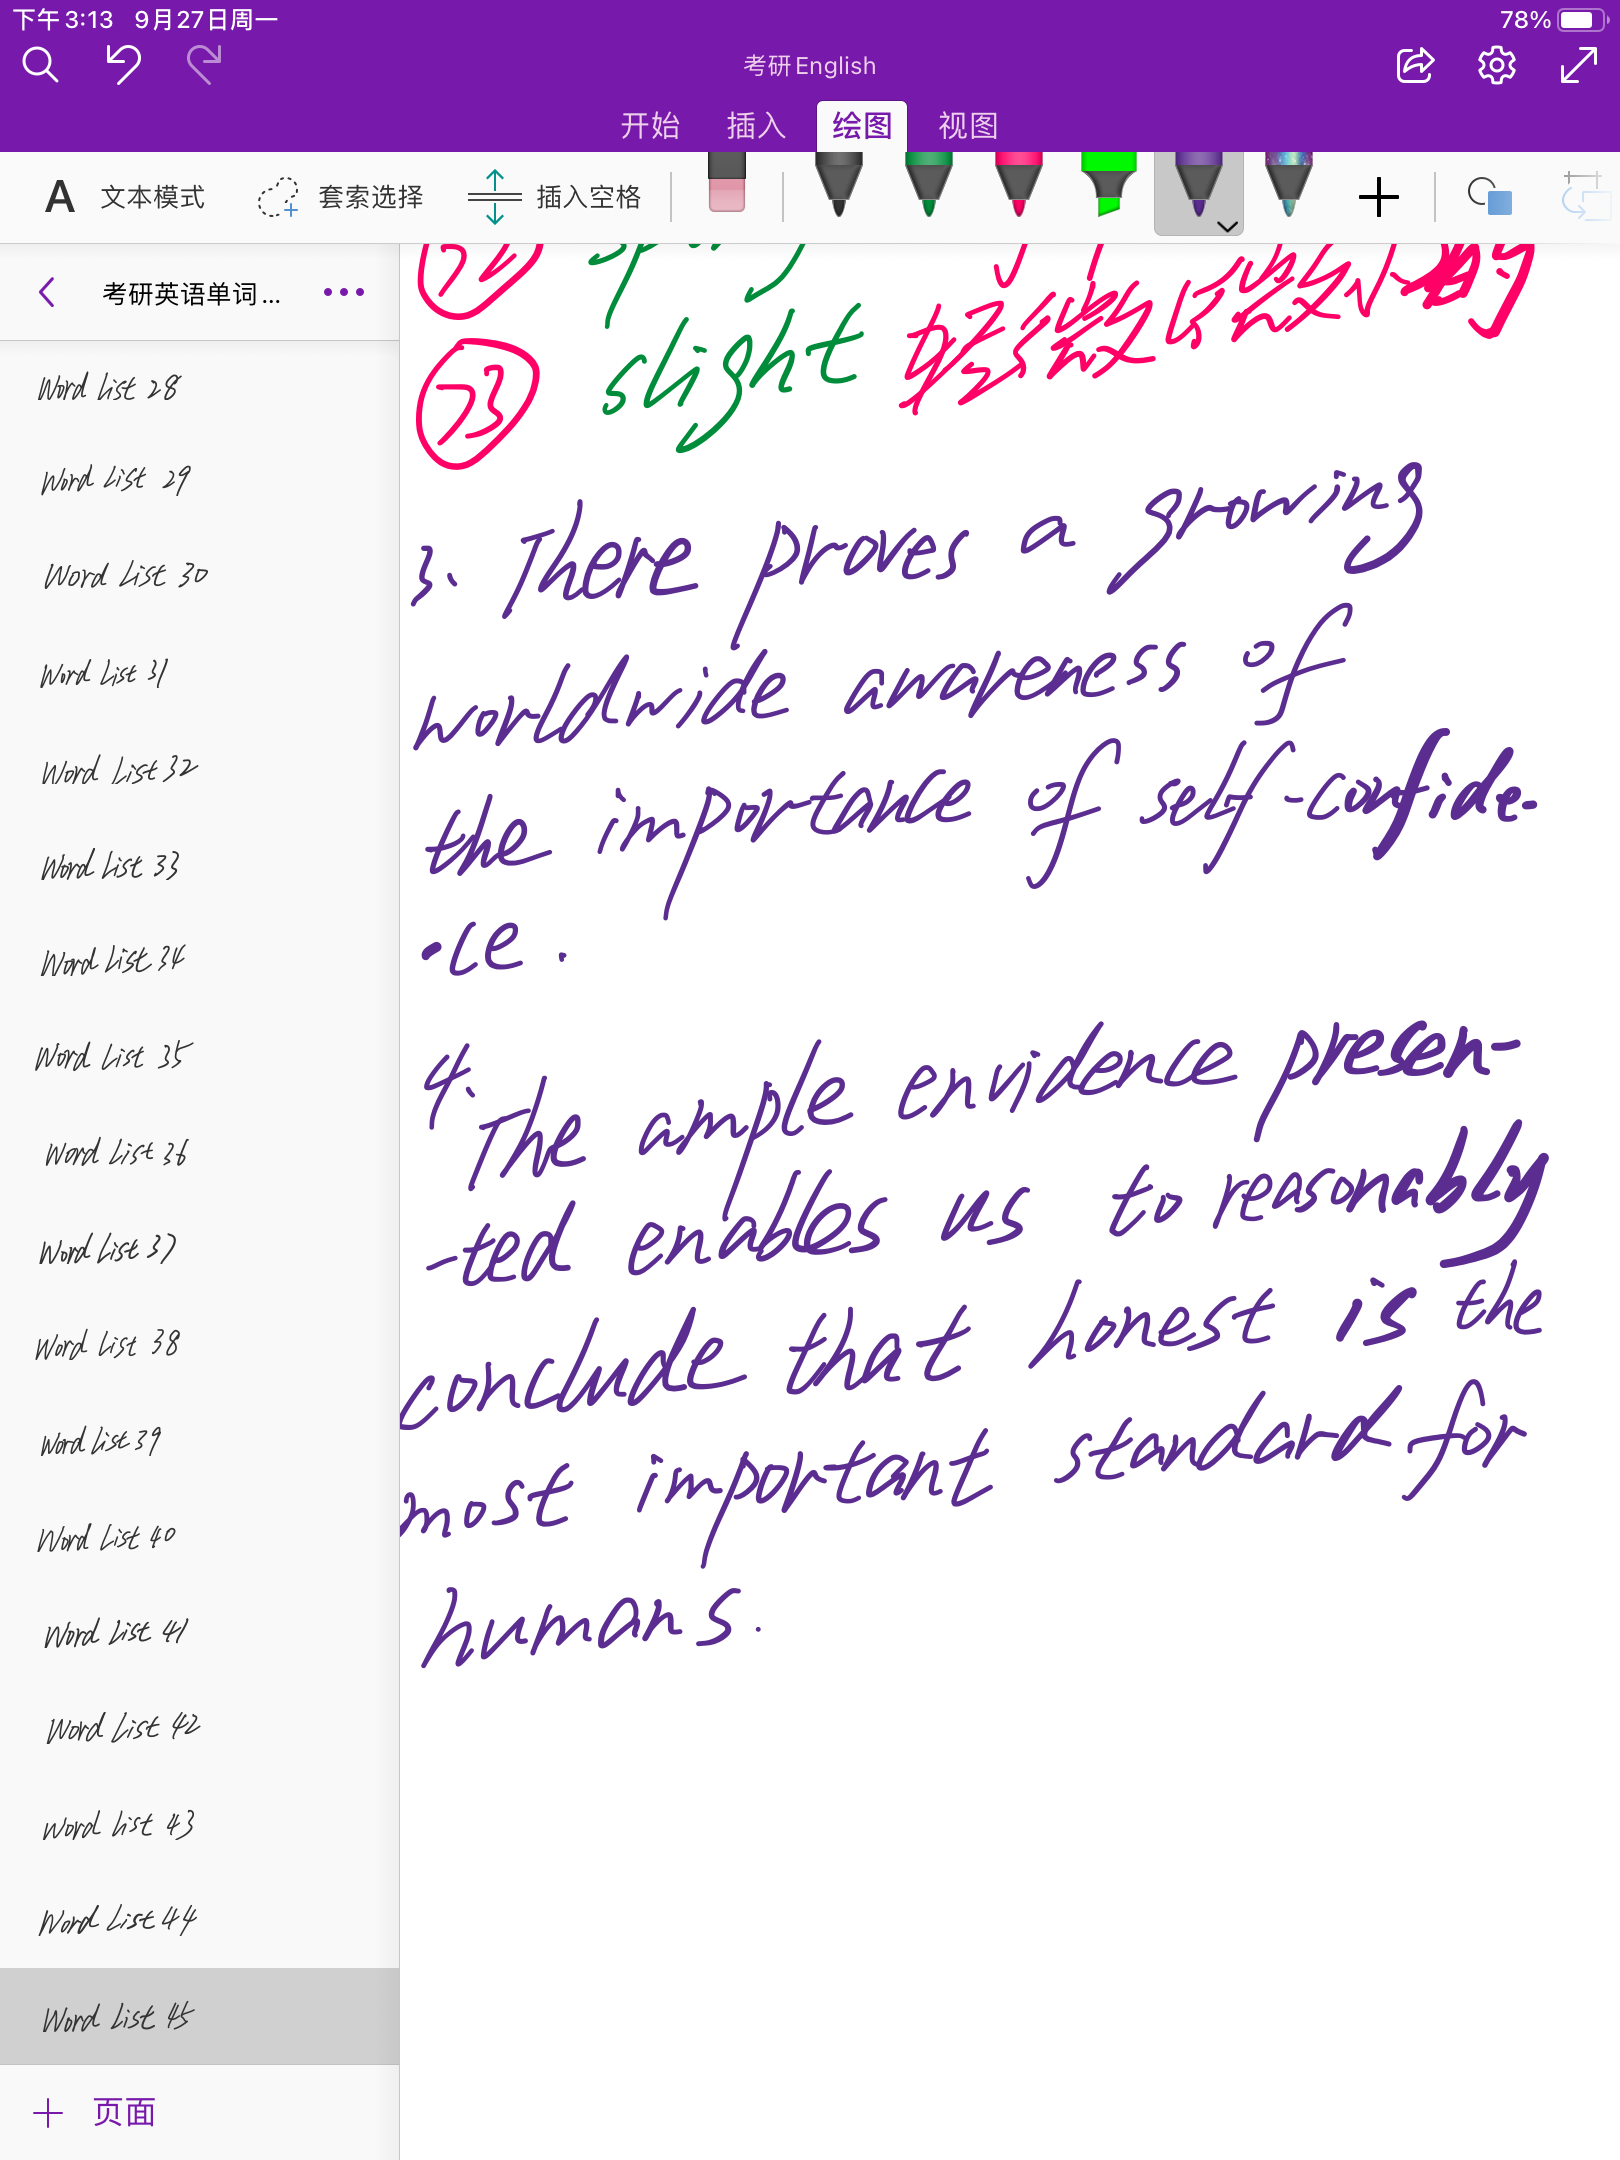 下午3:13 9月27日周一
78%
考研English
开始 插入 绘图 视图
A 文本模式 套索选择 插入空格
考研英语单词...
Word List 28
Word List 29
Word List 30
Word List 31
Word List 32
Word List 33
Word List 34
Word List 35
Word List 36
Word List 37
Word List 38
Word List 39
Word List 40
Word List 41
Word List 42
Word List 43
Word List 44
Word List 45
页面
72
73 slight 轻微的微小的
3. There proves a growing
worldwide awareness of
the importance of self-confide-
ce.
4. The ample envidence presen-
-ted enables us to reasonably
conclude that honest is the
most important standard for
humans.